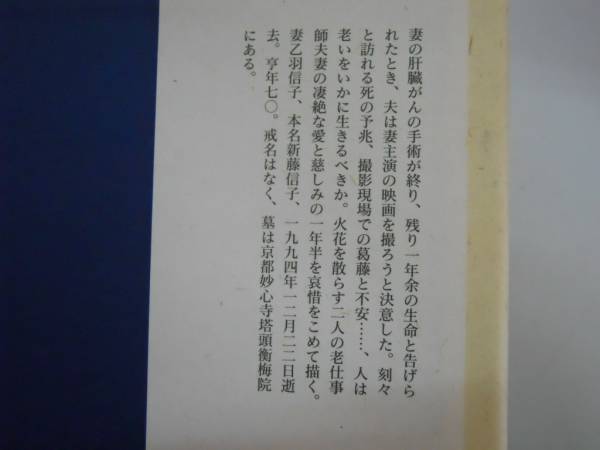 妻の肝臓がんの手術が終り、残り一年余の生命と告げら
れたとき、夫は妻主演の映画を撮ろうと決意した。刻々
と訪れる死の予兆、撮影現場での葛藤と不安……、人は
老いをいかに生きるべきか。火花を散らす二人の老仕事
師夫妻の凄絶な愛と慈しみの一年半を哀惜をこめて描く。
妻乙羽信子、本名新藤信子、一九九四年一二月二二日逝
去。享年七〇。戒名はなく、墓は京都妙心寺塔頭衡梅院
にある。